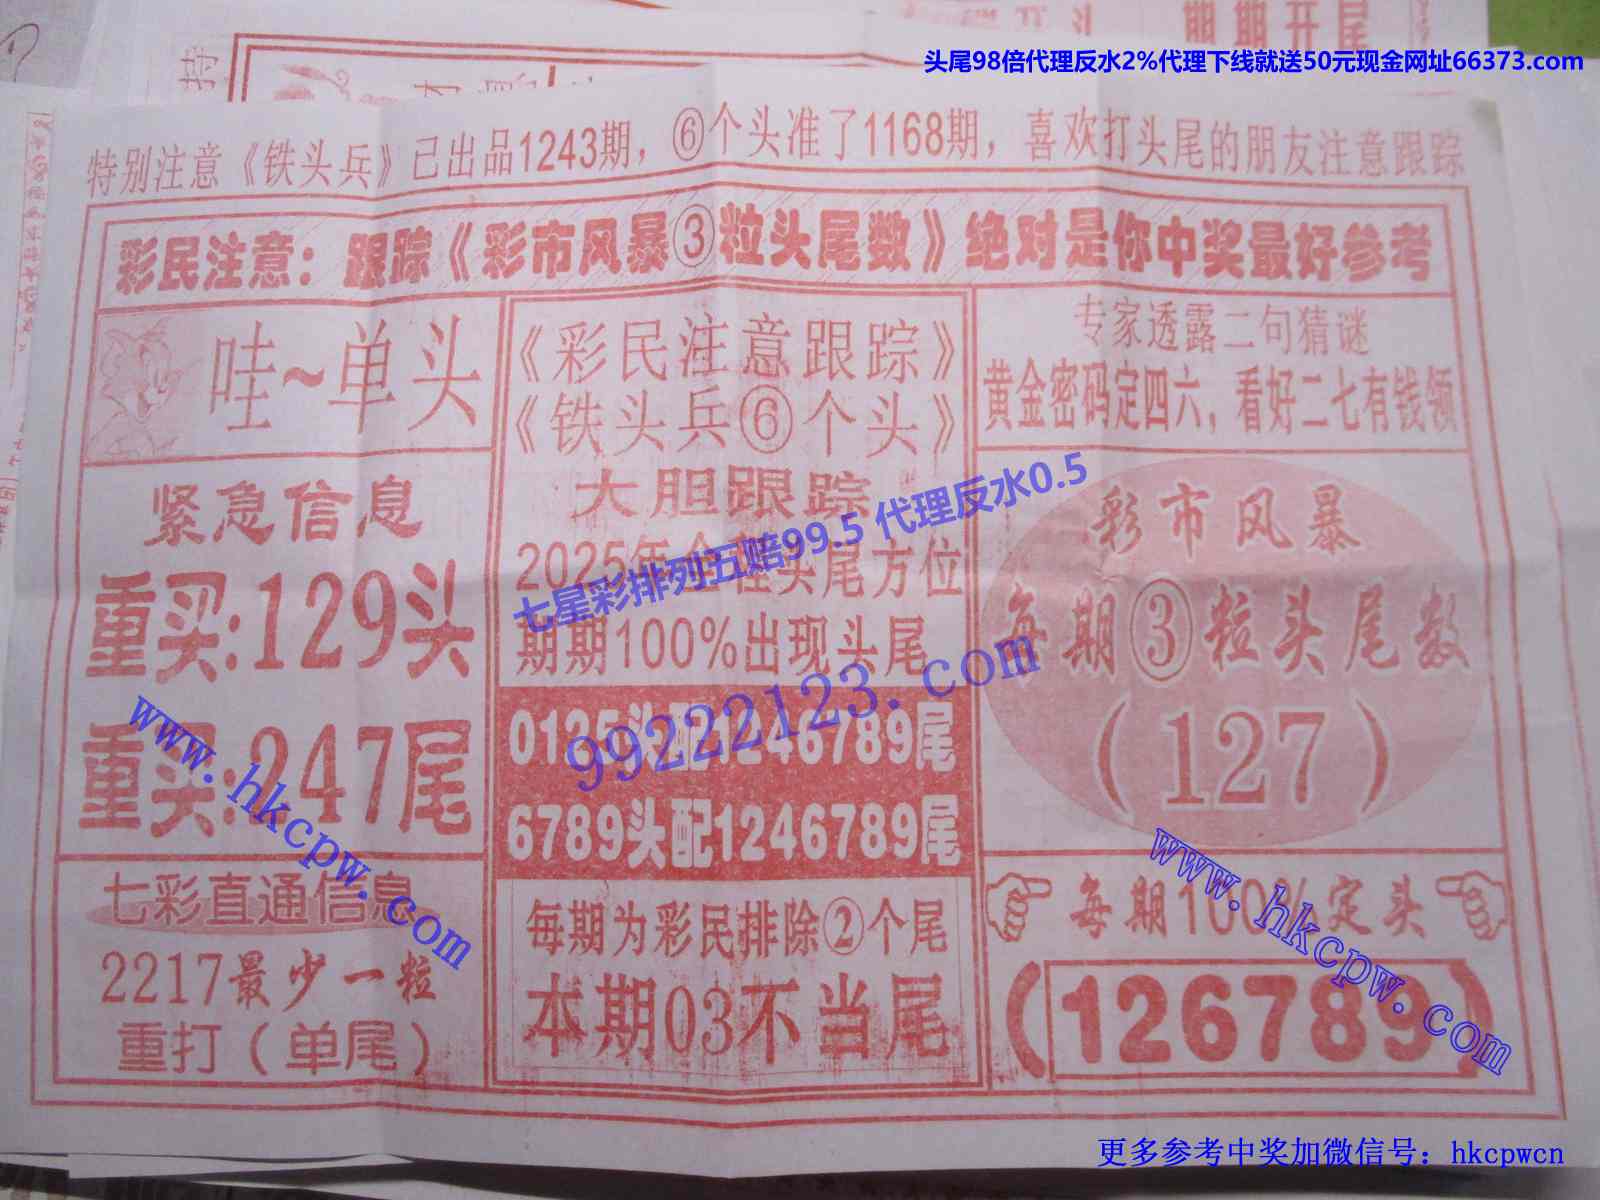 头尾98倍代理反水2%代理下线就送50元现金网址66373.com
特别注意《铁头兵》己出品1243期，⑥个头准了1168期，喜欢打头尾的朋友注意跟踪
彩民注意：跟踪《彩市风暴③粒头尾数》绝对是你中奖最好参考
哇~单头
紧急信息
重买:129头
重买:247尾
七彩直通信息
2217最少一粒
重打（单尾）
《彩民注意跟踪》
《铁头兵⑥个头》
大胆跟踪
2025年全程头尾方位
期期100%出现头尾
0125头配1246789尾
6789头配1246789尾
每期为彩民排除②个尾
本期03不当尾
专家透露二句猜谜
黄金密码定四六，看好二七有钱领
彩市风暴
每期③粒头尾数
（127）
每期100%定头
（126789）
七星彩排列五赔99.5 代理反水0.5
99222123.com
www.hkcpw.com
www.hkcpw.com
更多参考中奖加微信号：hkcpwcn